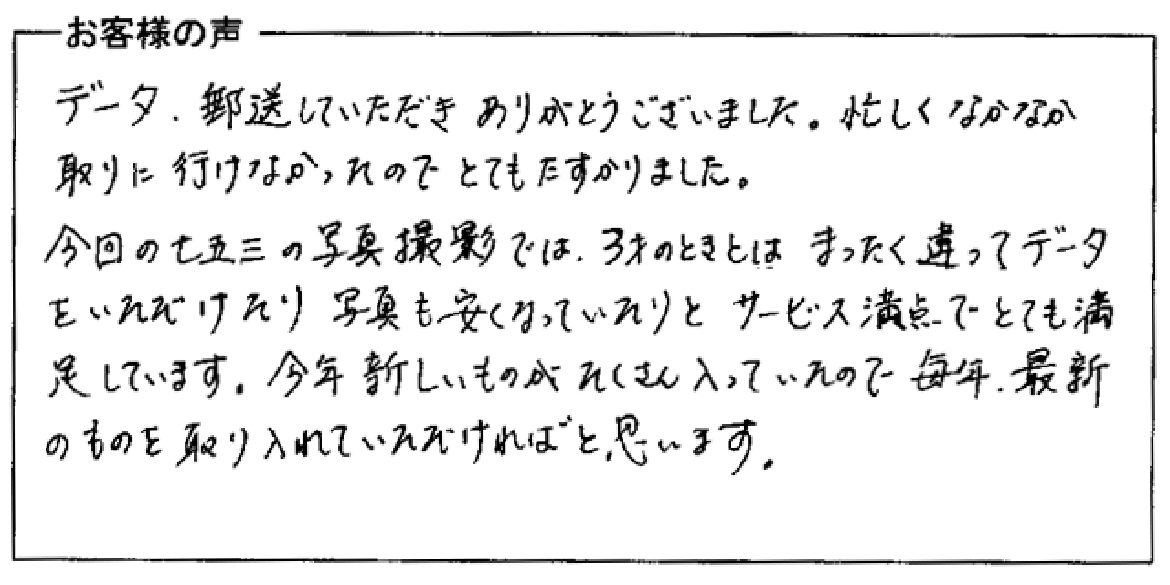 お客様の声
データ、郵送していただき ありがとうございました。忙しく なかなか
取りに 行けなかったので とても たすかりました。
今回の七五三の写真撮影では、3才のときとは まったく違ってデータ
をいただけたり 写真も安くなっていたりと サービス満点で とても満
足しています。今年 新しいものが たくさん入っていたので 毎年、最新
のものを取り入れていただければと思います。